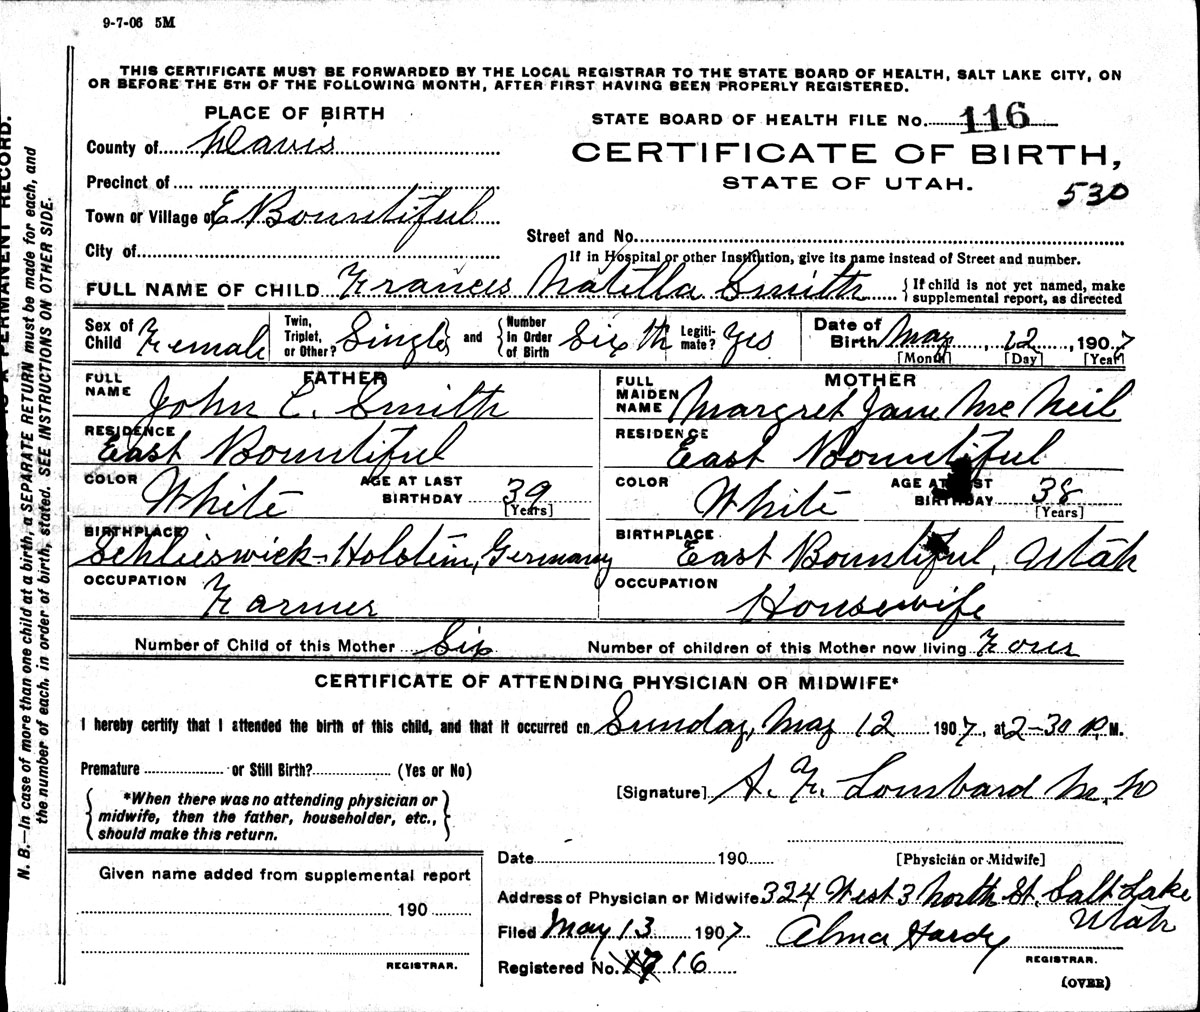 9-7-06 5M
THIS CERTIFICATE MUST BE FORWARDED BY THE LOCAL REGISTRAR TO THE STATE BOARD OF HEALTH, SALT LAKE CITY, ON
OR BEFORE THE 5TH OF THE FOLLOWING MONTH, AFTER FIRST HAVING BEEN PROPERLY REGISTERED.
PLACE OF BIRTH
County of Davis
Precinct of
Town or Village of E Bountiful
City of
STATE BOARD OF HEALTH FILE No. 116
CERTIFICATE OF BIRTH,
STATE OF UTAH.
530
Street and No.
If in Hospital or other Institution, give its name instead of Street and number.
FULL NAME OF CHILD Frances Matilla Smith { If child is not yet named, make
supplemental report, as directed
Sex of Child Female
Twin, Triplet, or Other? Single and Number in Order of Birth Sixth
Legiti-mate? Yes
Date of Birth May, 12, 1907
[Month] [Day] [Year]
FATHER
FULL NAME John C. Smith
RESIDENCE East Bountiful
COLOR White AGE AT LAST BIRTHDAY 39 [Years]
BIRTHPLACE Schlieswick-Holstein, Germany
OCCUPATION Farmer
MOTHER
FULL MAIDEN NAME Margret Jane McNeil
RESIDENCE East Bountiful
COLOR White AGE AT LAST BIRTHDAY 38 [Years]
BIRTHPLACE East Bountiful, Utah
OCCUPATION Housewife
Number of Child of this Mother Six Number of children of this Mother now living Four
CERTIFICATE OF ATTENDING PHYSICIAN OR MIDWIFE*
I hereby certify that I attended the birth of this child, and that it occurred on Sunday, May 12 1907, at 2-30 P.M.
Premature or Still Birth? (Yes or No)
*When there was no attending physician or
midwife, then the father, householder, etc.,
should make this return.
[Signature] A. F. Lombard M.D
[Physician or Midwife]
Given name added from supplemental report
190
REGISTRAR.
Date 190
Address of Physician or Midwife 324 West 3 North St. Salt Lake
Utah
Filed May 13 1907 Alma Hardy
REGISTRAR.
Registered No. 16
(OVER)
N. B.—In case of more than one child at a birth, a SEPARATE RETURN must be made for each, and
the number of each, in order of birth, stated. SEE INSTRUCTIONS ON OTHER SIDE.
PERMANENT RECORD.